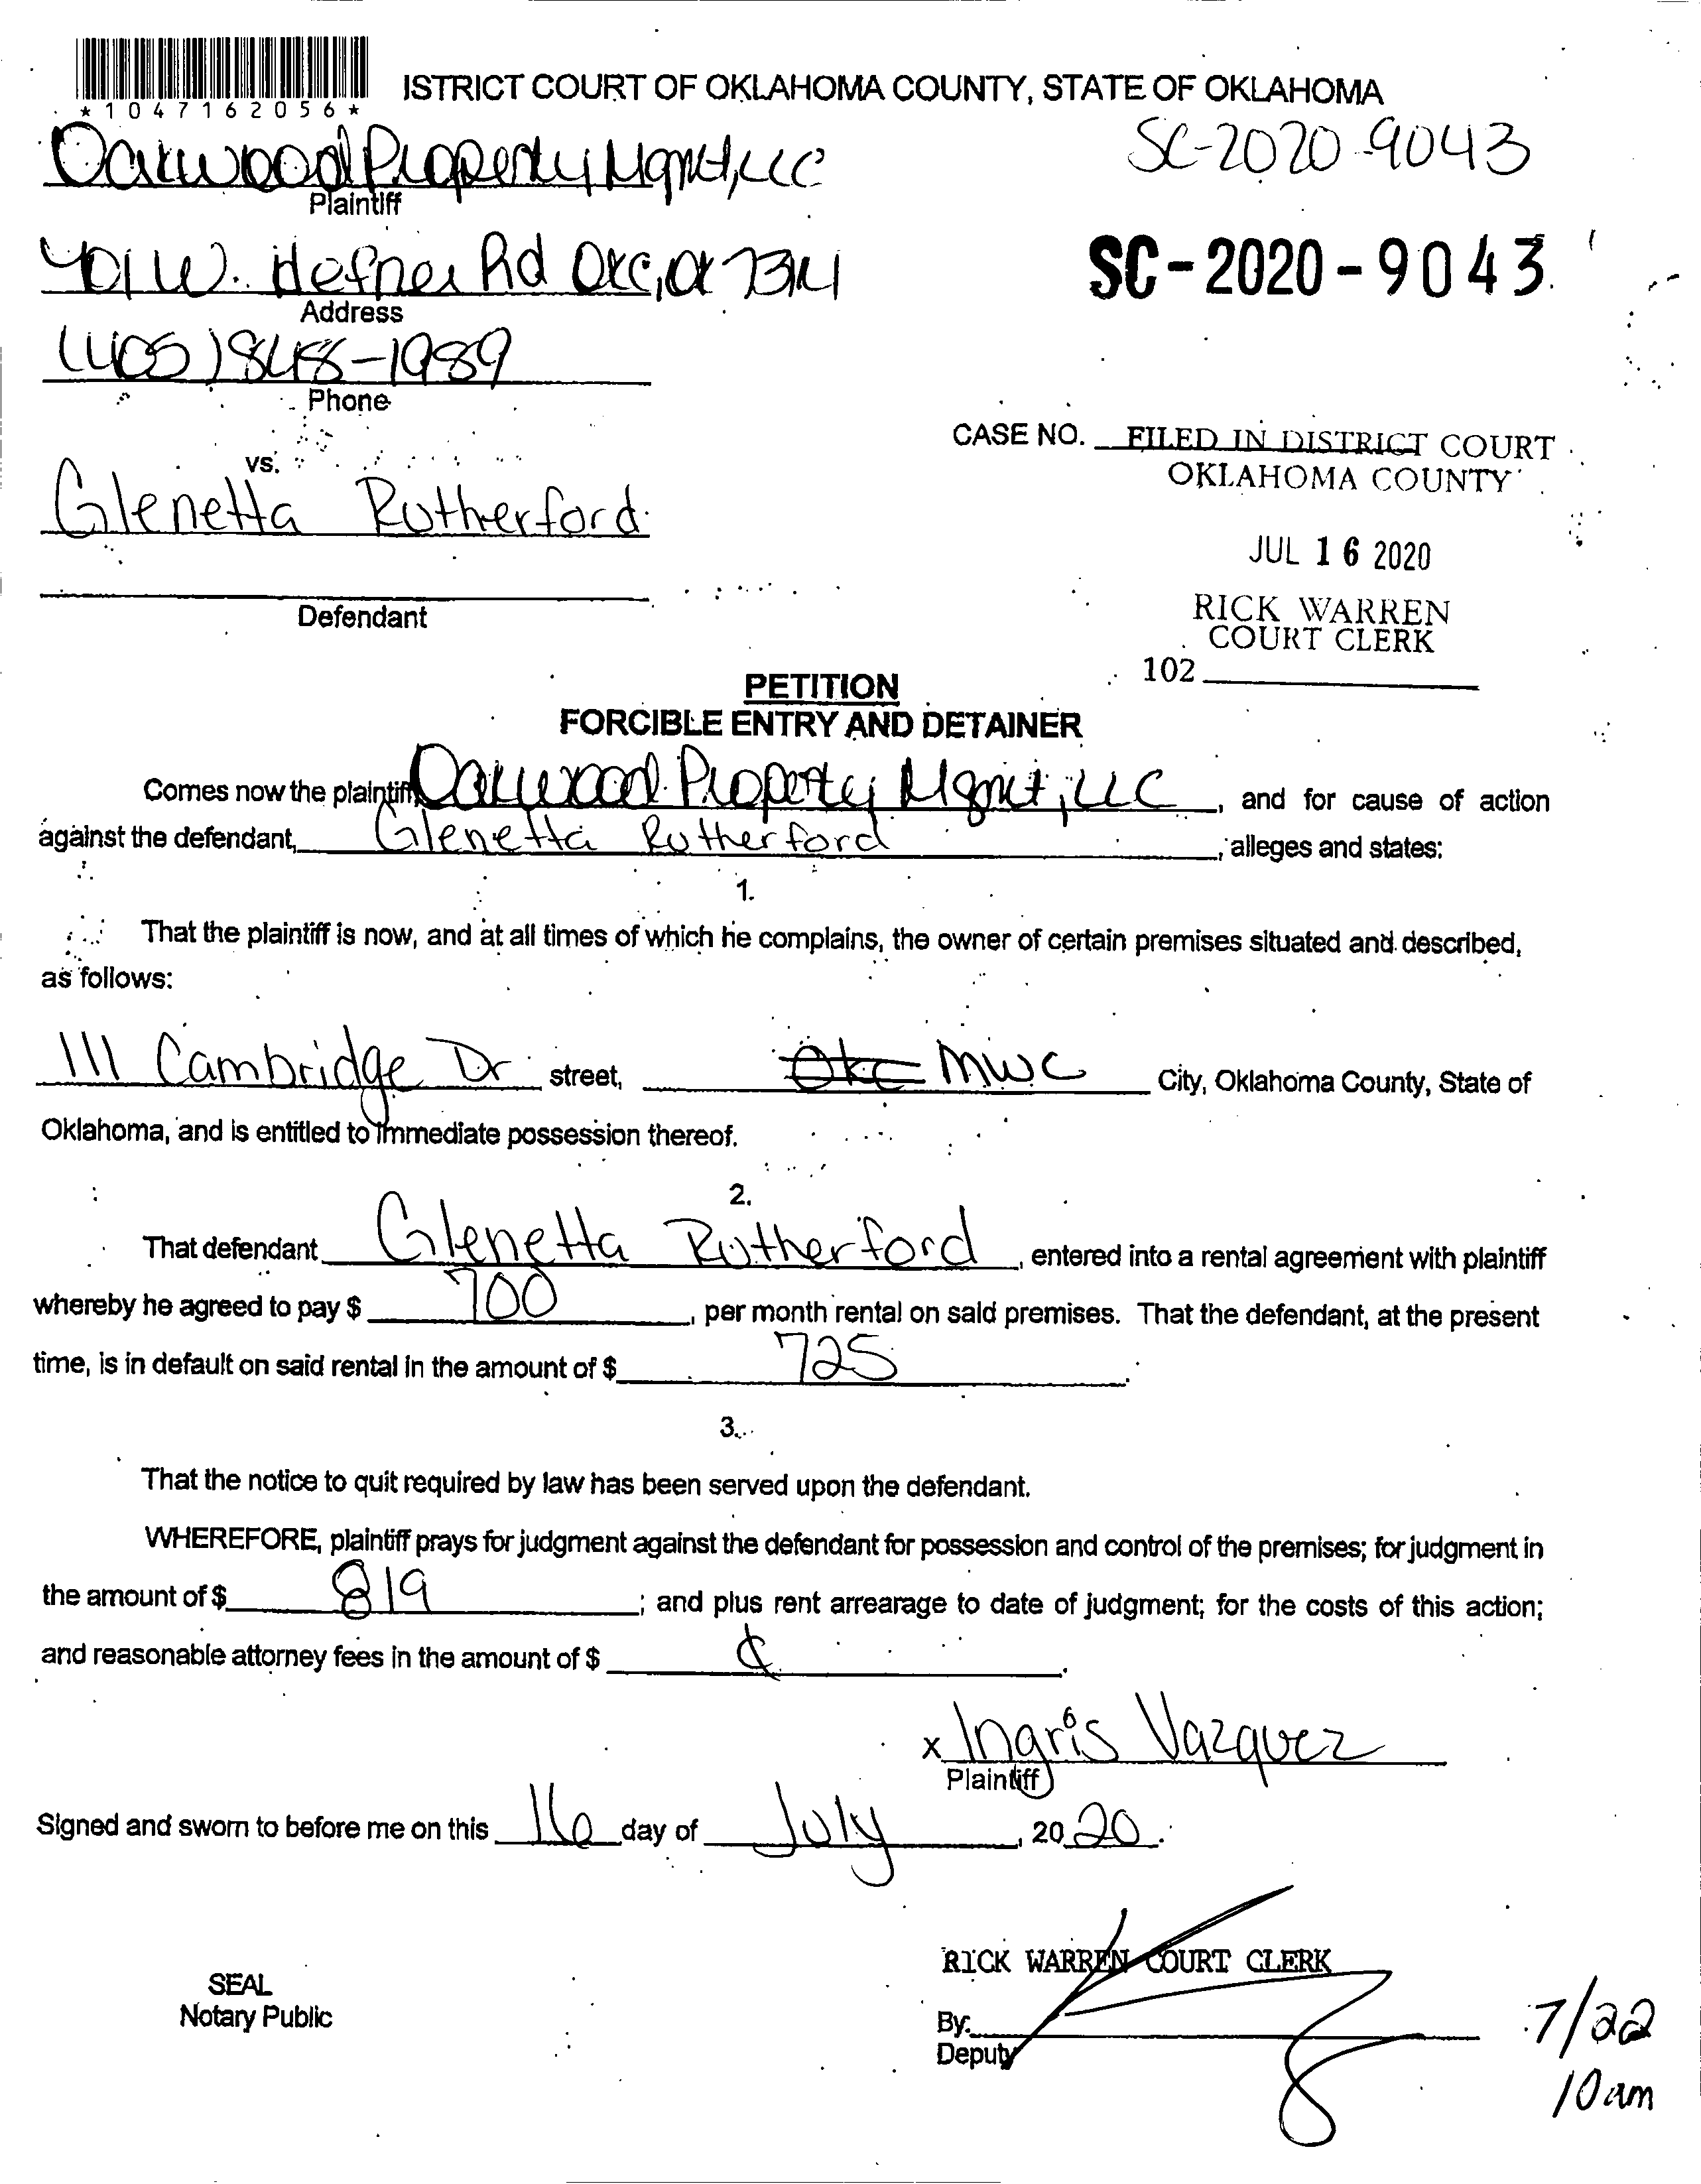 *1047162056*
ISTRICT COURT OF OKLAHOMA COUNTY, STATE OF OKLAHOMA
Oakwood Property Mgmt, LLC
SC-2020-9043
Plaintiff
401 W. Hefner Rd OKC, OK 73114
SC-2020-9043
Address
(405) 848-1989
Phone
CASE NO. FILED IN DISTRICT COURT
OKLAHOMA COUNTY
vs.
Glenetta Rutherford
JUL 16 2020
Defendant
RICK WARREN
COURT CLERK
102
PETITION
FORCIBLE ENTRY AND DETAINER
Comes now the plaintiff, Oakwood Property Mgmt, LLC, and for cause of action
against the defendant, Glenetta Rutherford, alleges and states:
1.
That the plaintiff is now, and at all times of which he complains, the owner of certain premises situated and described,
as follows:
111 Cambridge Dr street, OKC MWC City, Oklahoma County, State of
Oklahoma, and is entitled to immediate possession thereof.
2.
That defendant Glenetta Rutherford, entered into a rental agreement with plaintiff
whereby he agreed to pay $ 700, per month rental on said premises. That the defendant, at the present
time, is in default on said rental in the amount of $ 725.
3.
That the notice to quit required by law has been served upon the defendant.
WHEREFORE, plaintiff prays for judgment against the defendant for possession and control of the premises; for judgment in
the amount of $ 819; and plus rent arrearage to date of judgment; for the costs of this action;
and reasonable attorney fees in the amount of $
x Ingris Vazquez
Plaintiff
Signed and sworn to before me on this 16 day of July, 2020.
RICK WARREN COURT CLERK
SEAL
Notary Public
By:
Deputy
7/22
10am